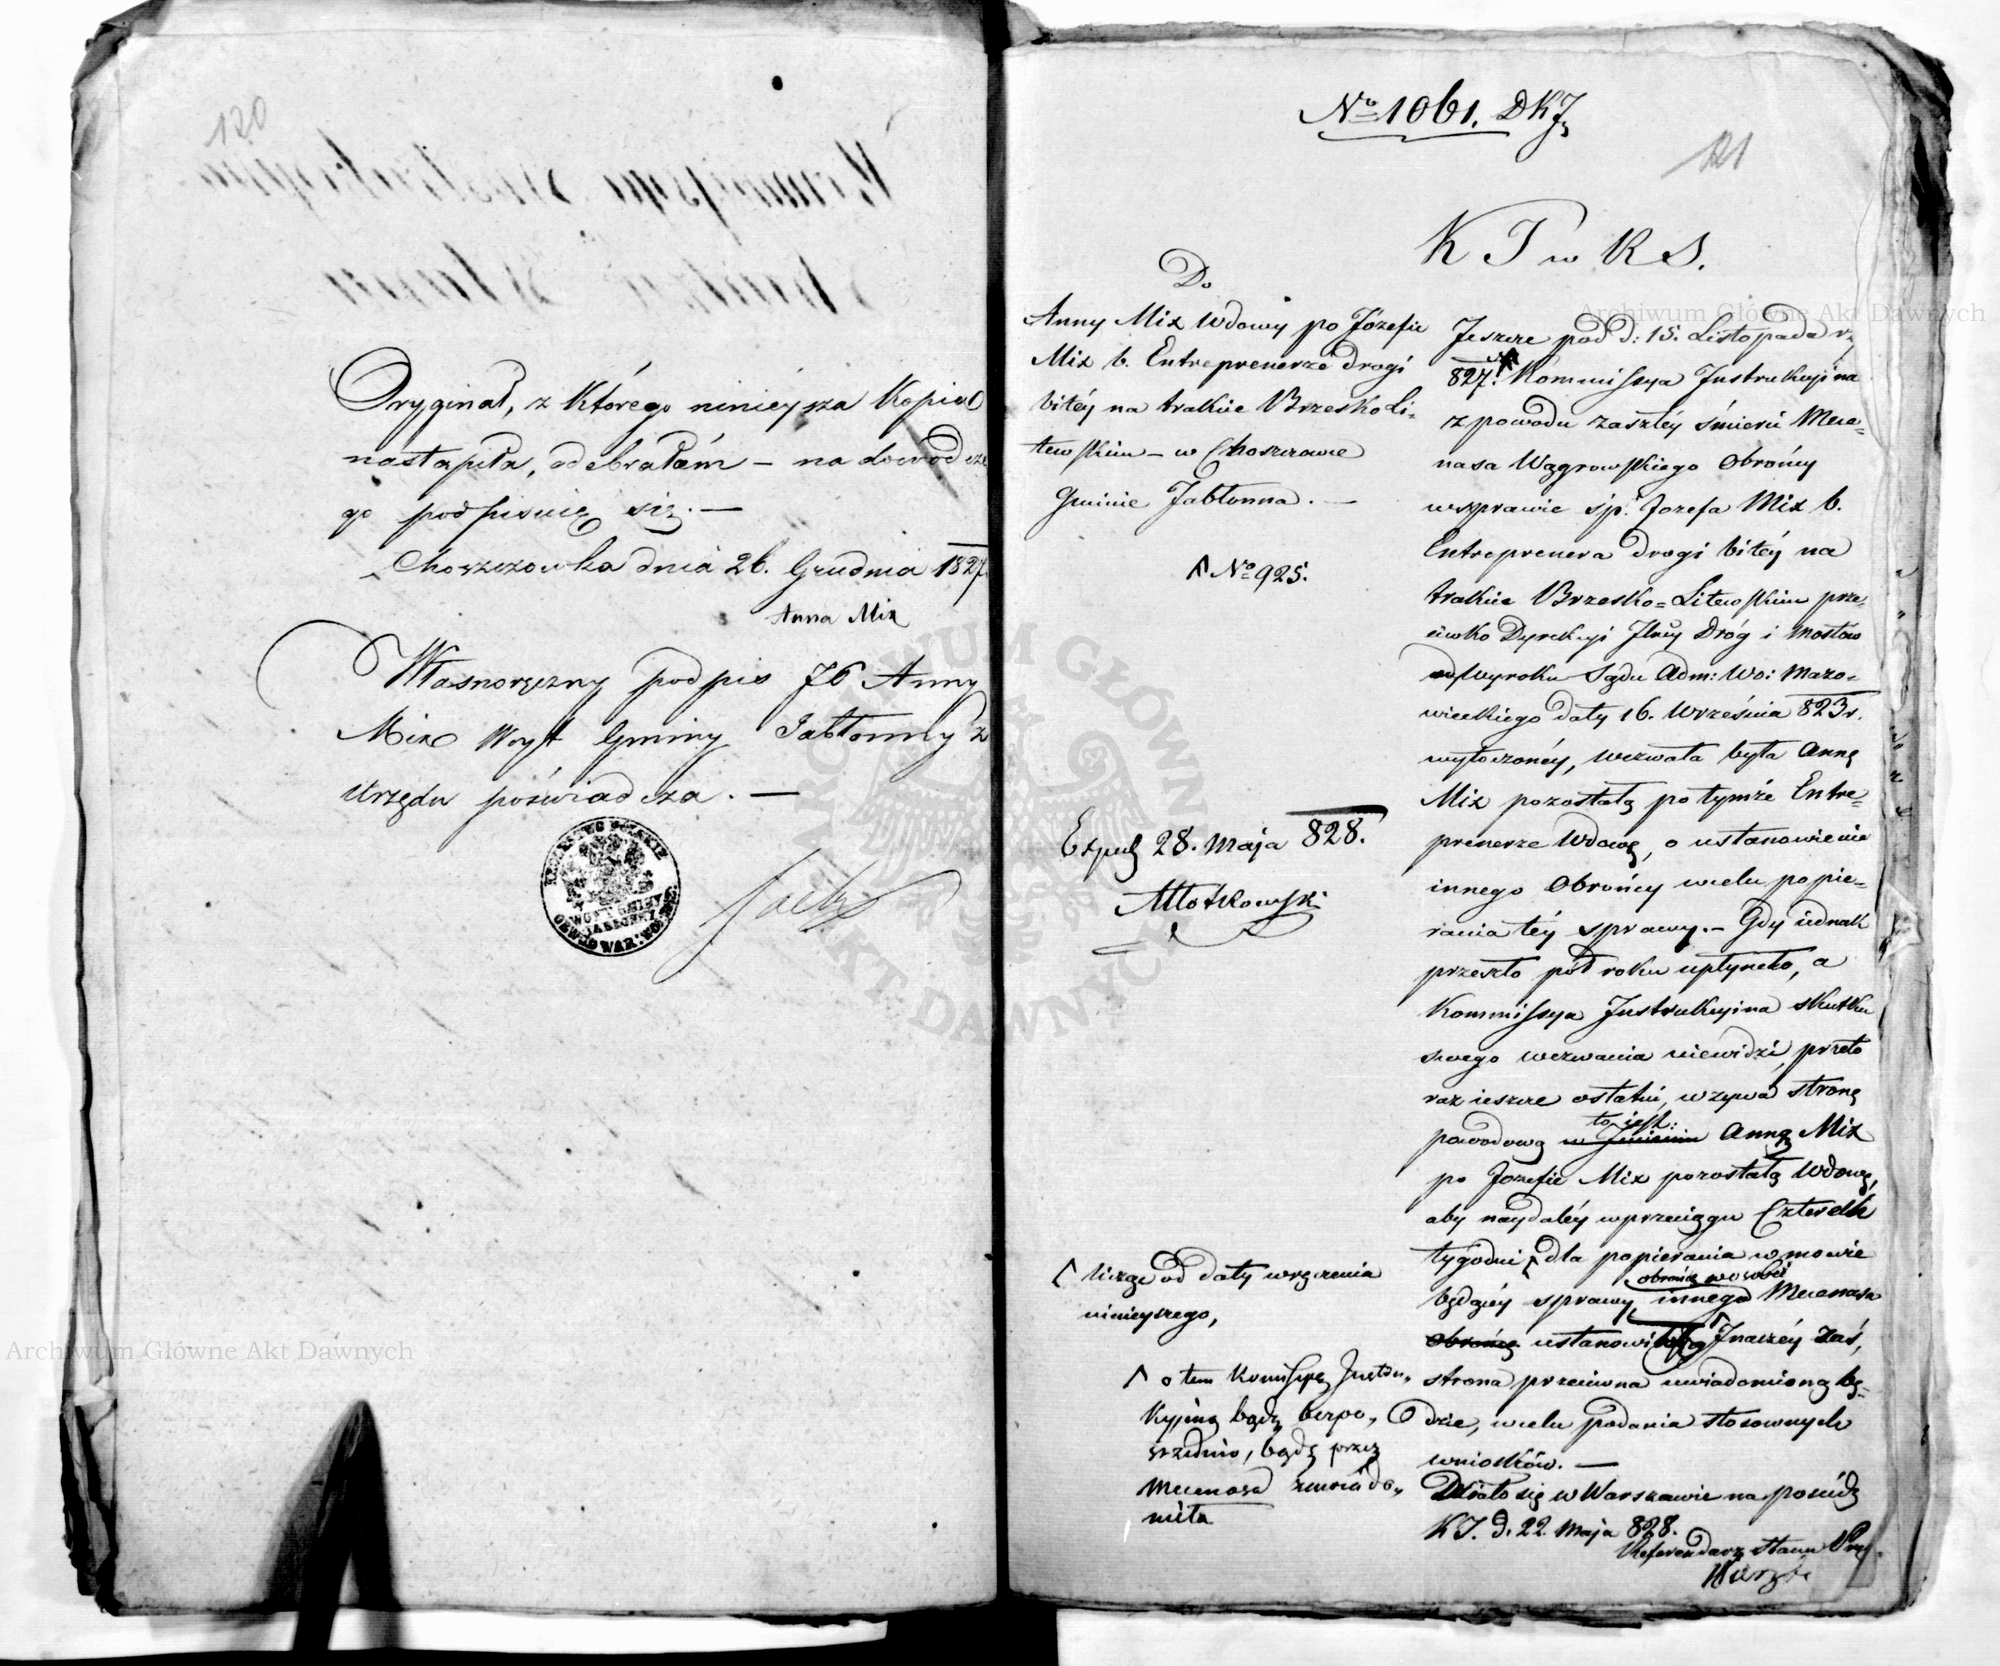 120
Oryginał, z którego ninieysza Kopia
nastąpiła, odebrałam – na dowód cze
go podpisuię się. –
Choszczowka dnia 26. Grudnia 1827.
Anna Mix
Własnoręczny podpis JP Anny
Mix Woyt Gminy Jabłonny z
Urzędu poświadcza. –
KRÓLESTWO POLSKIE
WOYT GMINY
JABŁONNY
OBWOD WAR:
No 1061. DKJ
121
K J w R S.
Do
Anny Mix Wdowy po Józefie
Mix b. Entreprenerze drogi
bitéy na trakcie Brzesko Li-
tewskim – w Choszczowce
Gminie Jabłonna. –
Λ No 925.
Exped 28. Maja 828.
Młotkowski
Λ licząc od daty wręczenia
ninieyszego,
Λ o tem Kommissyę Instru-
kcyjną bądź bezpo-
średnio, bądź przez
Mecenasa zawiado-
miła
Jeszcze pod d: 15. Listopada r.
827. Λ Kommissya Instrukcyjna
z powodu zaszłéy śmierci Mece-
nasa Wągrowskiego Obrońcy
w sprawie śp. Jozefa Mix b.
Entreprenera drogi bitéy na
trakcie Brzesko-Litewskim prze-
ciwko Dyrekcyi Jlney Dróg i Mostów
od Wyroku Sądu Adm: Wo: Mazo-
wieckiego daty 16. Września 823 r.
wytoczonéy, wezwała była Annę
Mix pozostałą po tymże Entre-
prenerze Wdowę, o ustanowienie
innego Obrońcy w celu popie-
rania téy sprawy. – Gdy iednak
przeszło pół roku upłynęło, a
Kommissya Instrukcyjna skutku
swego wezwania nie widzi, przeto
raz ieszcze ostatni, wzywa stronę
to iest:
powodową w Imieniu Annę Mix
po Jozefie Mix pozostałą Wdowę,
aby naydaléy w przeciągu Czterech
tygodni Λ dla popierania w mowie
obrońcę w osobie
będącéy sprawy, innego Mecenasa
Obrońcę ustanowiła Λ Inaczéy zaś,
strona przeciwna uwiadomioną bę-
dzie, w celu podania stosownych
wniosków. –
Działo się w Warszawie na posiedz
K J. d. 22. Maja 828.
Referendarz Stanu Prez.